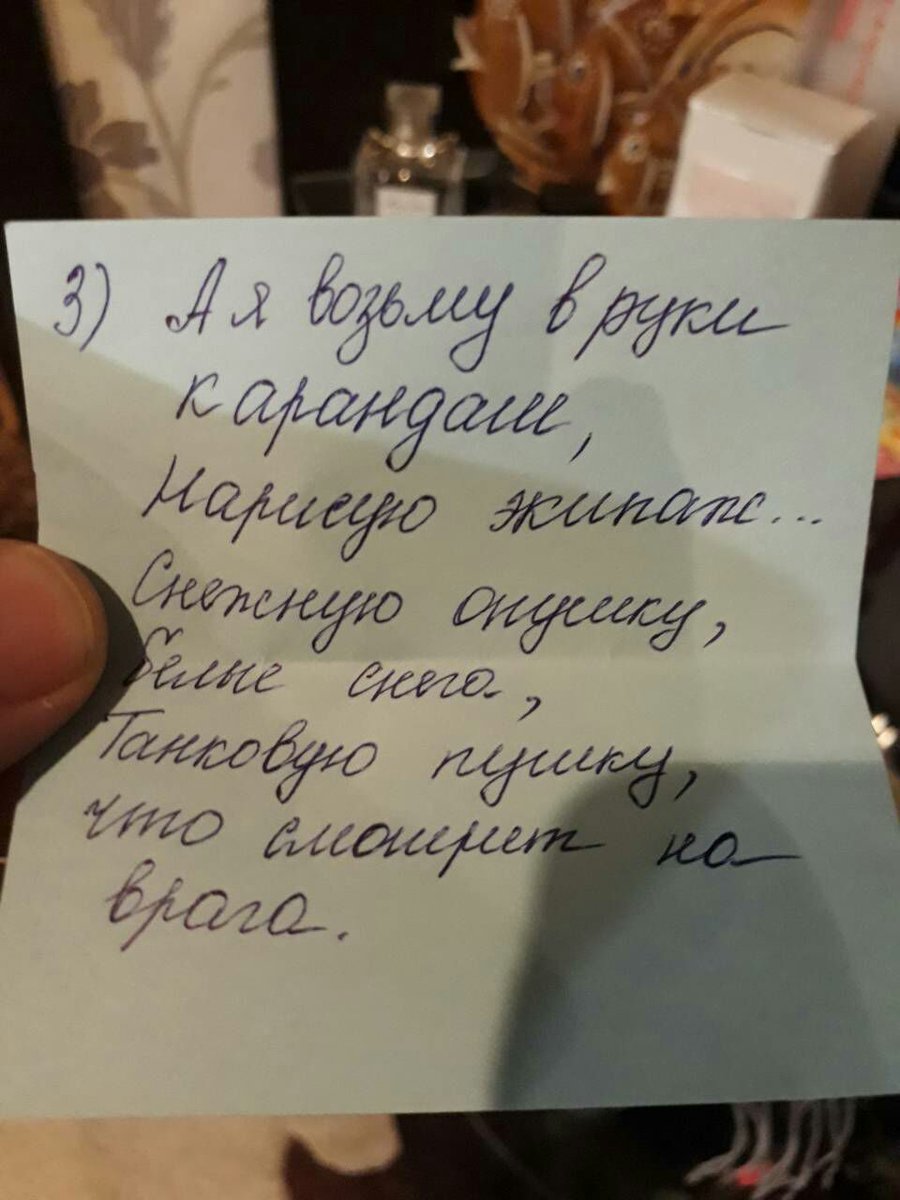 3) А я возьму в руки
карандаш,
Нарисую экипаж...
Снежную опушку,
белые снега,
Танковую пушку,
что смотрит на
врага.